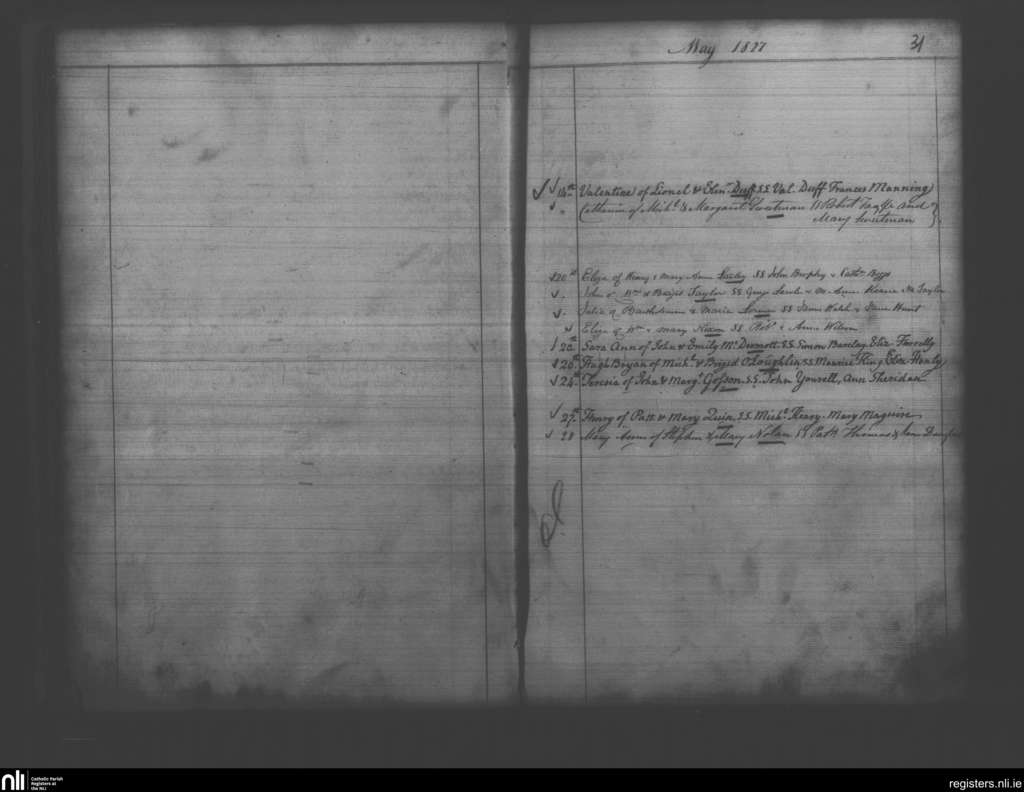 May 1877
31
√ √ 14th Valentine of Lionel & Elenr. Duff SS Val. Duff Frances Manning
√ " Catherine of Michl. & Margaret Sweetman SS Robert and
Mary Sweetman
√20th Eliza of Henry & Mary Anne SS John Brophy & Cathn. Biggs
√ " John of Wm & Bridget Taylor SS George & M. Anne Taylor
√ " Julia of Bartholomew & Maria SS James Walsh & Jane Hunt
√ Eliza of Wm & Mary Nixon SS Robt & Anne Wilson
√ 20th Sara Ann of John & Emily McDermott SS Simon Barclay Eliz. Farrelly
√ 20th Hugh Bryan of Michl. & Brigid O'Loughlin SS Maurice King Eliza Healy
√ 24th Teresia of John & Margt. SS. John Yourell, Ann Sheridan
√ 27th Henry of Patt & Mary Quin SS Michl. Keary. Mary Maguire
√ 28 Mary Anne of Stephen & Mary Nolan SS Patk Thomas &
nli
Catholic Parish
Registers at
the NLI
registers.nli.ie